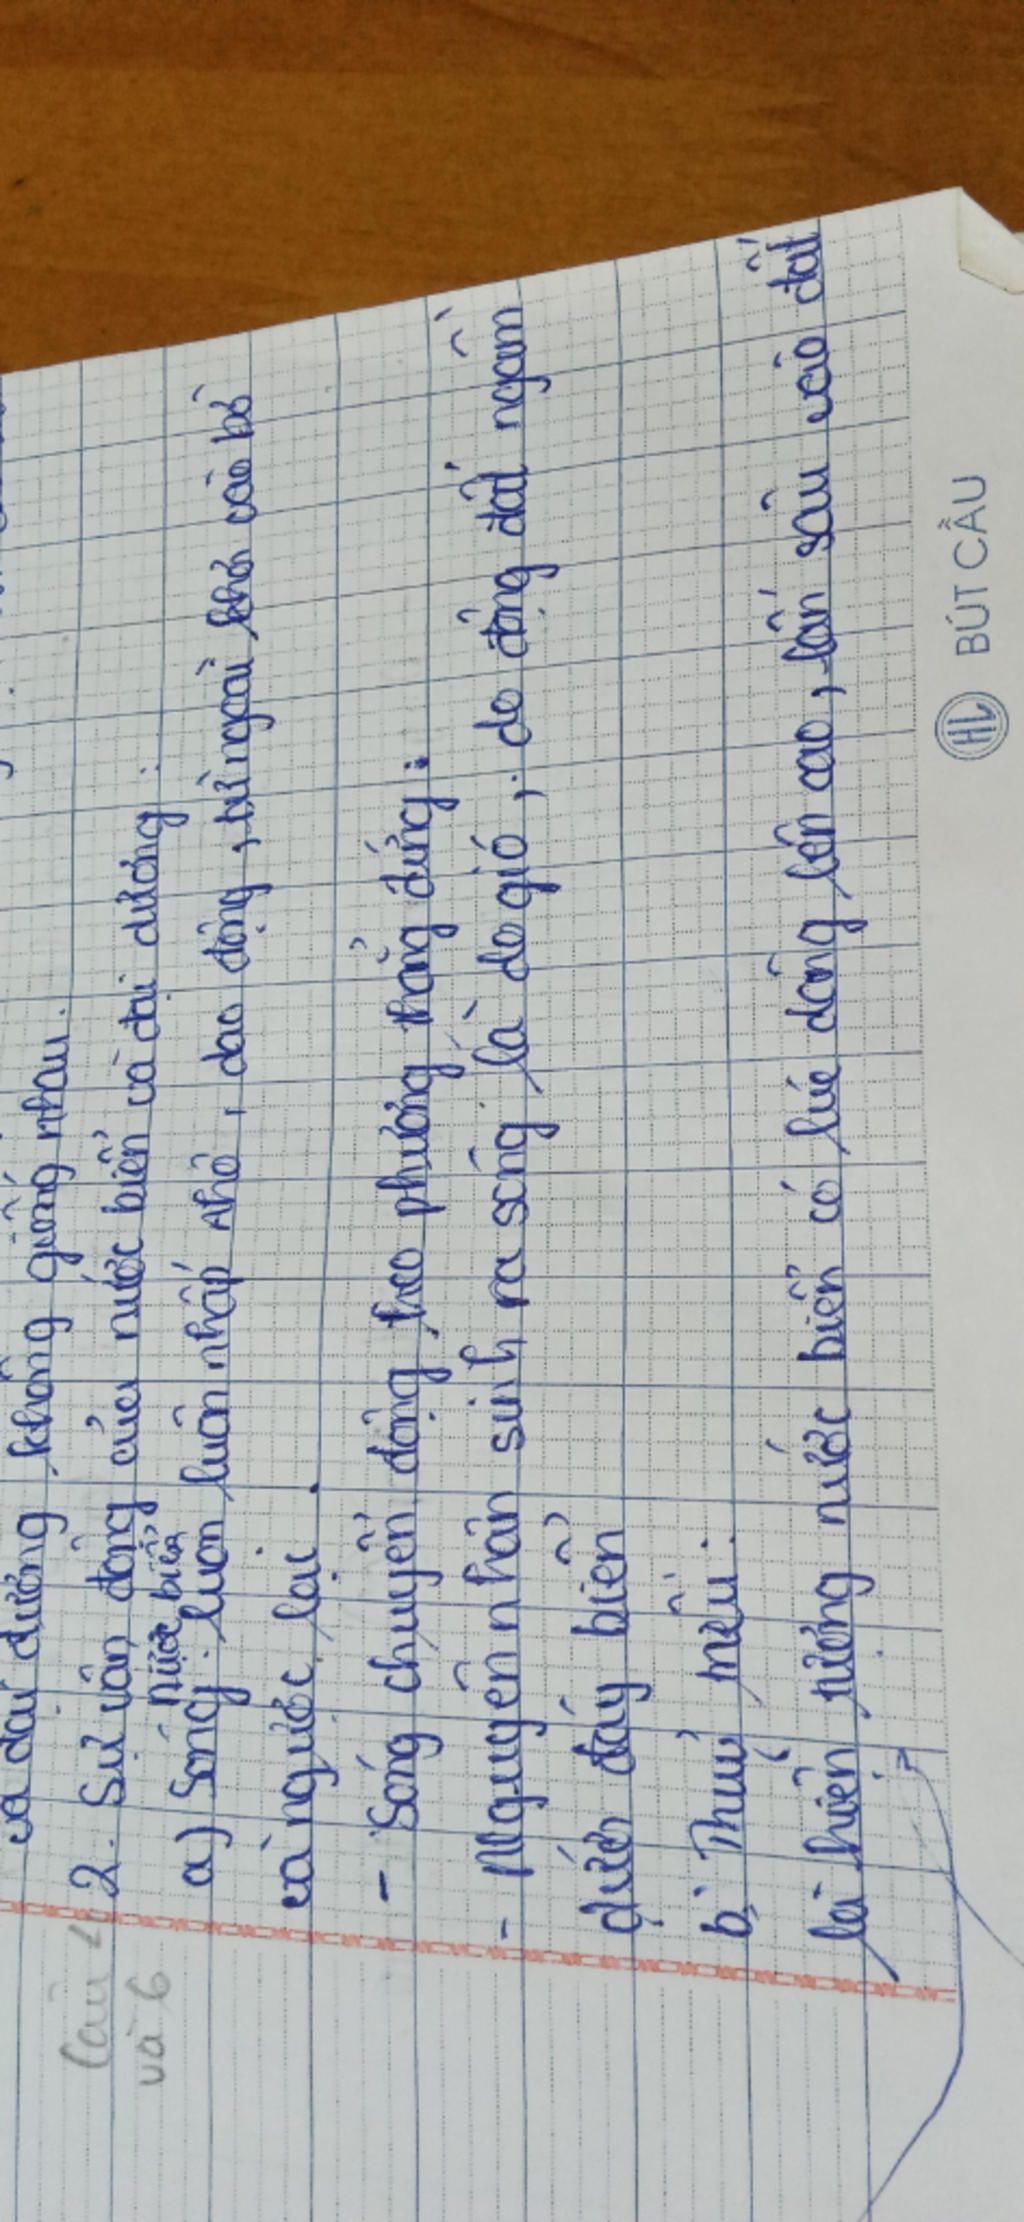 và đại dương không giống nhau.
2. Sự vận động của nước biển và đại dương :
nước biển
a) Sóng : luôn luôn nhấp nhô, dao động, từ ngoài khơi vào bờ
và ngược lại.
- Sóng chuyển động theo phương thẳng đứng :
- Nguyên nhân sinh ra sóng là do gió, do động đất ngầm
dưới đáy biển
b) Thuỷ triều :
là hiện tượng nước biển có lúc dâng lên cao, lấn sâu vào đất
câu
và 6
HL BÚT CẦU